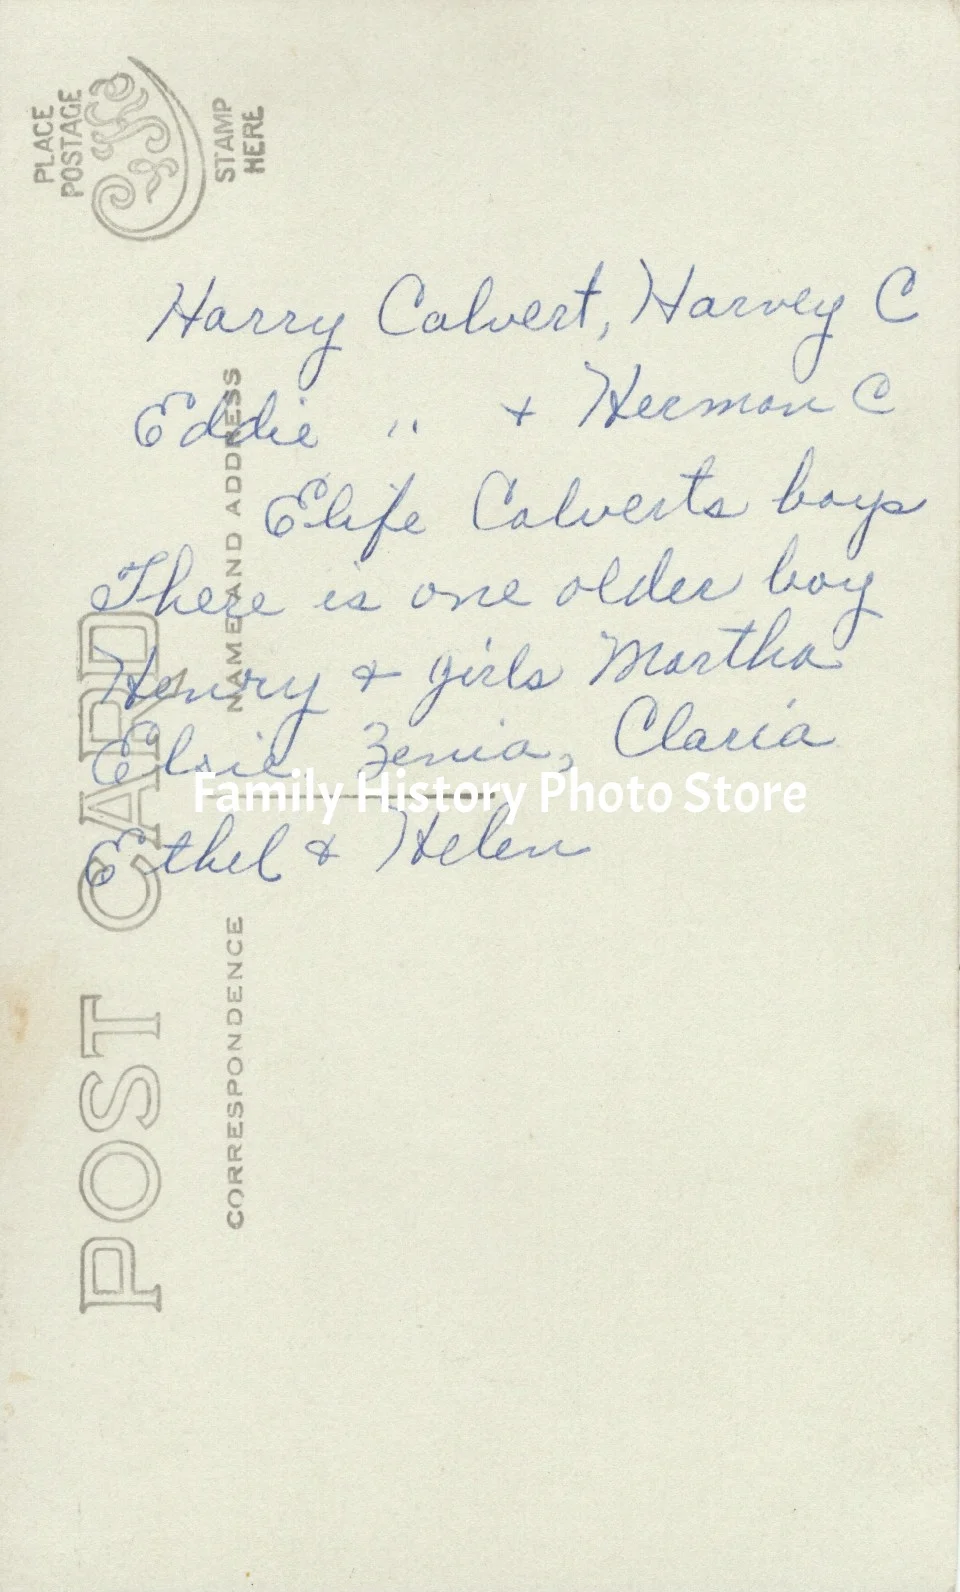 PLACE
POSTAGE
STAMP
HERE
Harry Calvert, Harvey C
Eddie " + Herman C
Elife Calverts boys
There is one older boy
Henry & girls Martha
Elsie Zenia, Claria
Ethel & Helen
NAME AND ADDRESS
POST CARD
CORRESPONDENCE
Family History Photo Store